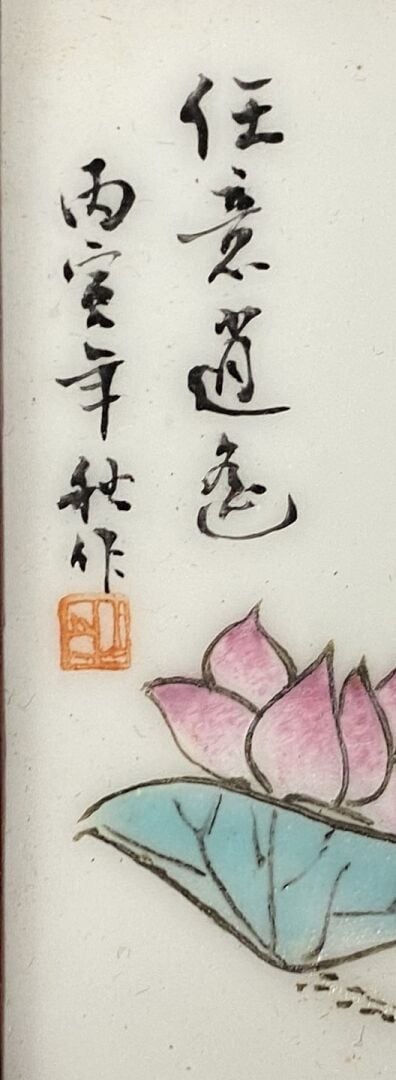 任意逍遥
丙寅年秋作